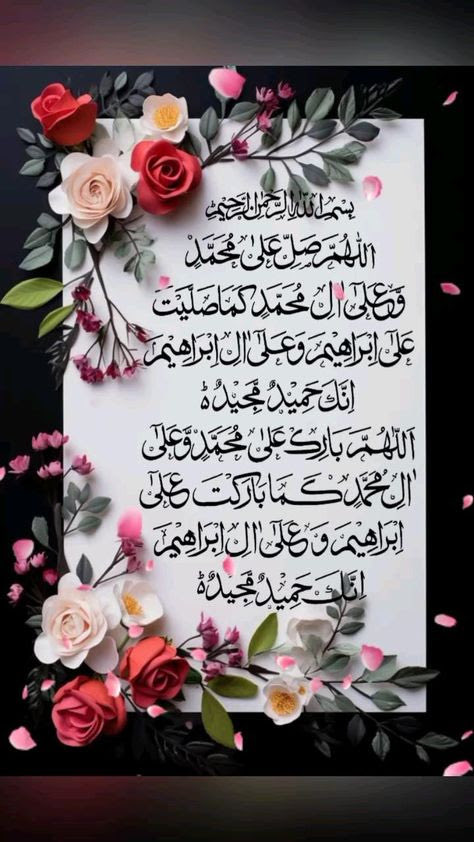 بِسْمِ اللّٰهِ الرَّحْمٰنِ الرَّحِيْمِ
اَللّٰهُمَّ صَلِّ عَلٰى مُحَمَّدٍ
وَّعَلٰٓى اٰلِ مُحَمَّدٍ كَمَا صَلَّيْتَ
عَلٰٓى اِبْرَاهِيْمَ وَعَلٰٓى اٰلِ اِبْرَاهِيْمَ
اِنَّكَ حَمِيْدٌ مَّجِيْدٌ ط
اَللّٰهُمَّ بَارِكْ عَلٰى مُحَمَّدٍ وَّعَلٰٓى
اٰلِ مُحَمَّدٍ كَمَا بَارَكْتَ عَلٰٓى
اِبْرَاهِيْمَ وَعَلٰٓى اٰلِ اِبْرَاهِيْمَ
اِنَّكَ حَمِيْدٌ مَّجِيْدٌ ط